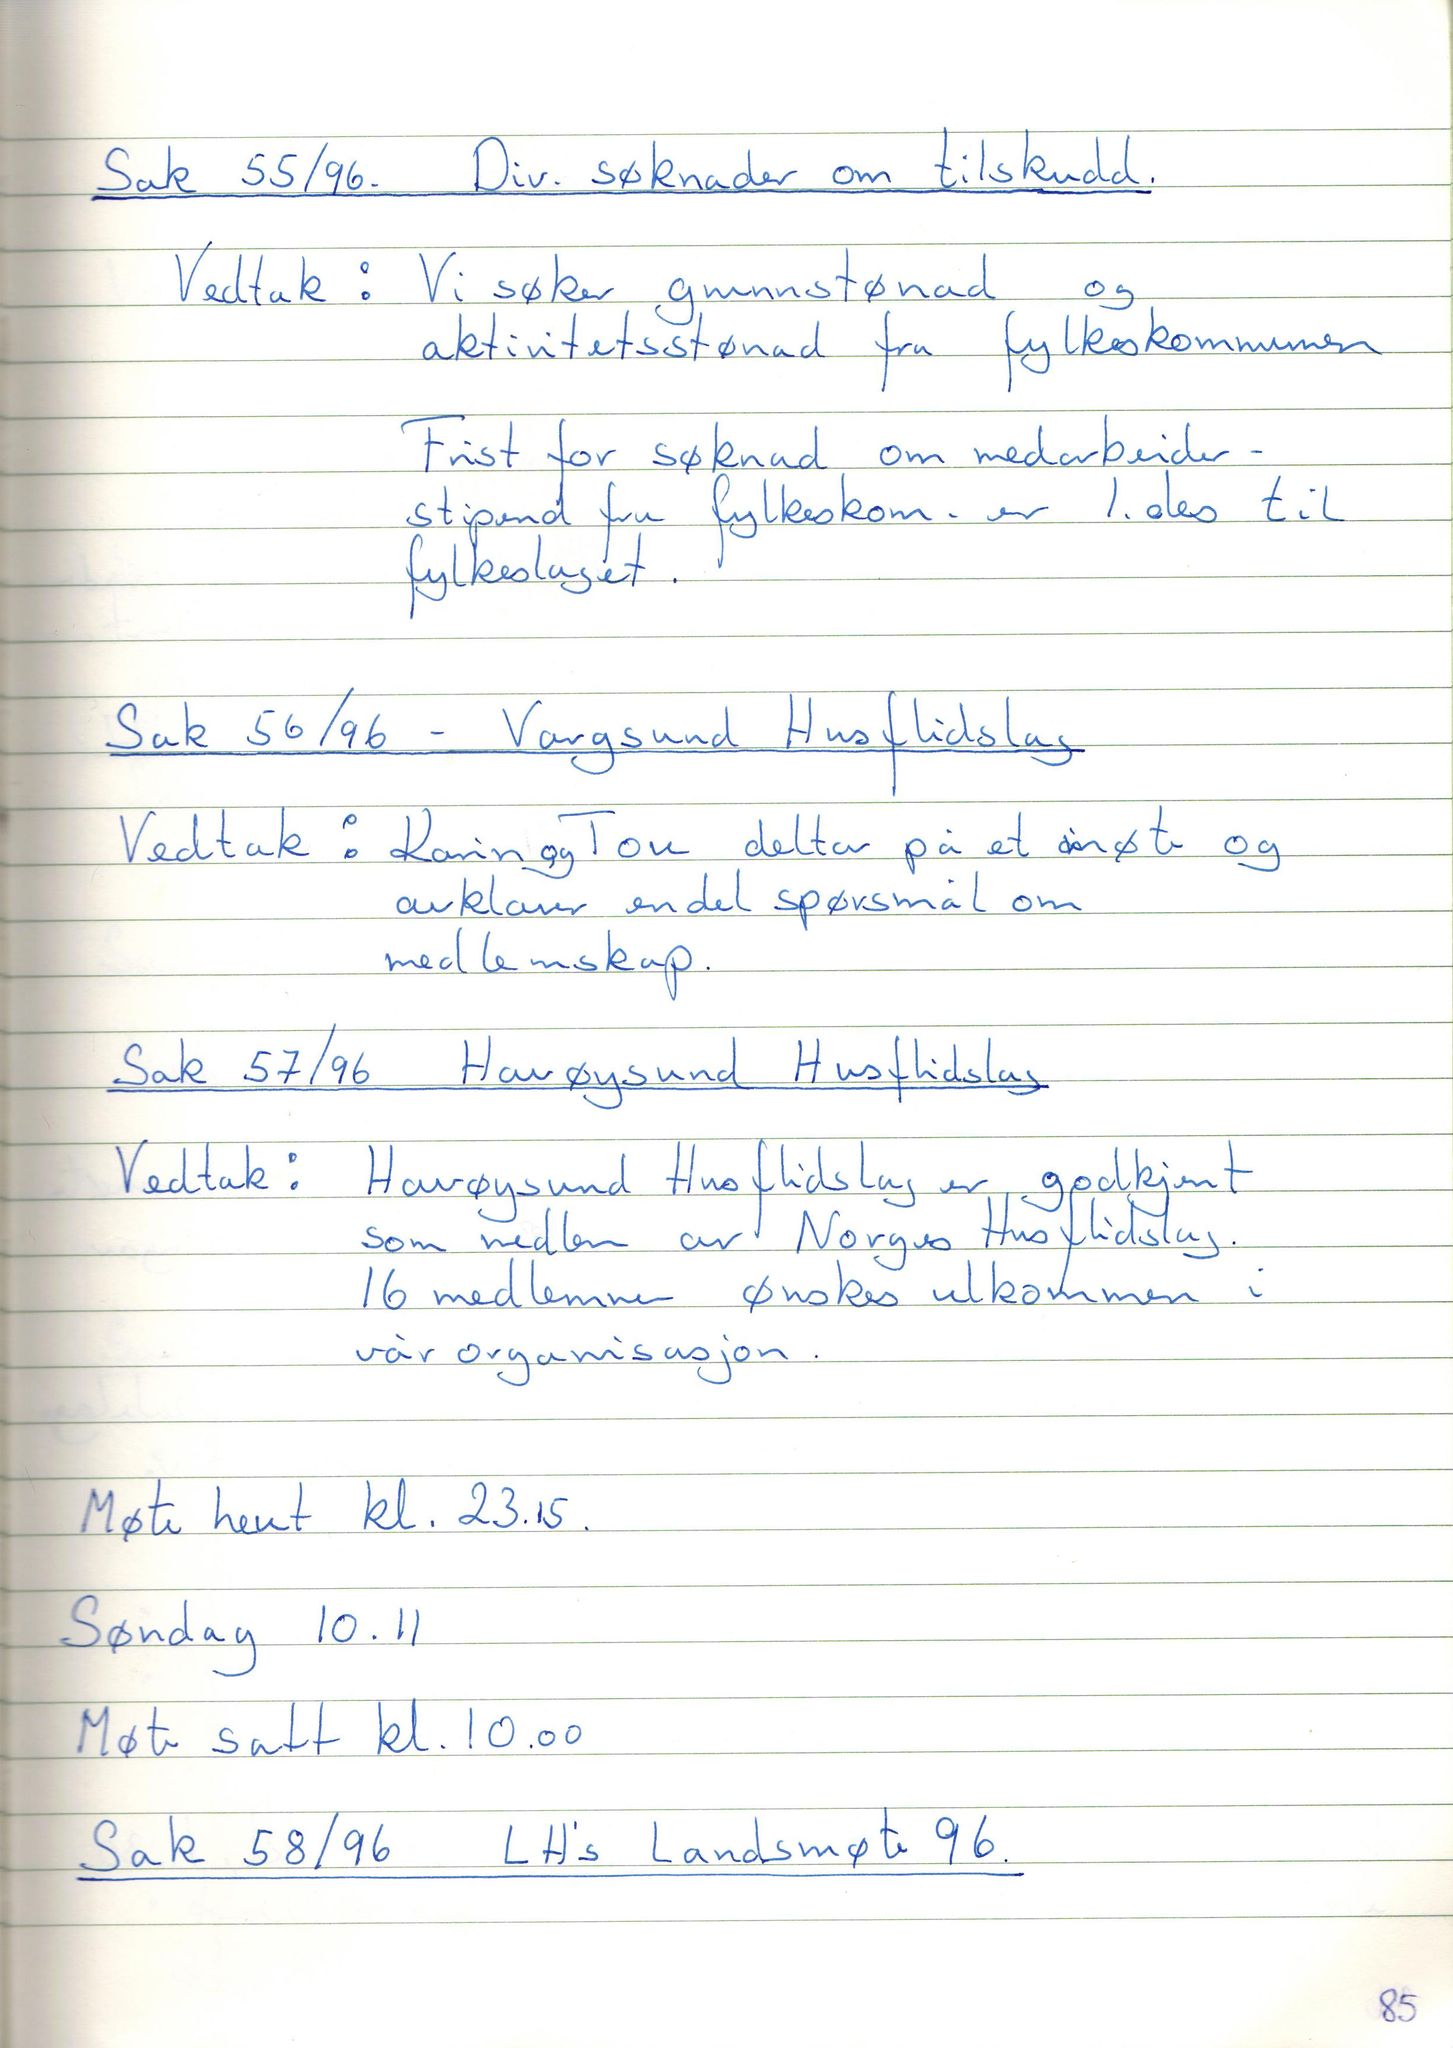 Sak 55/96. Div. søknader om tilskudd.
Vedtak: Vi søker grunnstønad og
aktivitetsstønad fra fylkeskommunen
Frist for søknad om medarbeider-
stipend fra fylkeskom. er 1. des til
fylkeslaget.
Sak 56/96 - Vargsund Husflidslag
Vedtak: Karin og Tove deltar på et møte og
avklarer endel spørsmål om
medlemskap.
Sak 57/96 Havøysund Husflidslag
Vedtak: Havøysund Husflidslag er godkjent
som medlem av Norges Husflidslag.
16 medlemmer ønskes velkommen i
vår organisasjon.
Møte hevet kl. 23.15.
Søndag 10.11
Møte satt kl. 10.00
Sak 58/96 LH's Landsmøte 96.
85